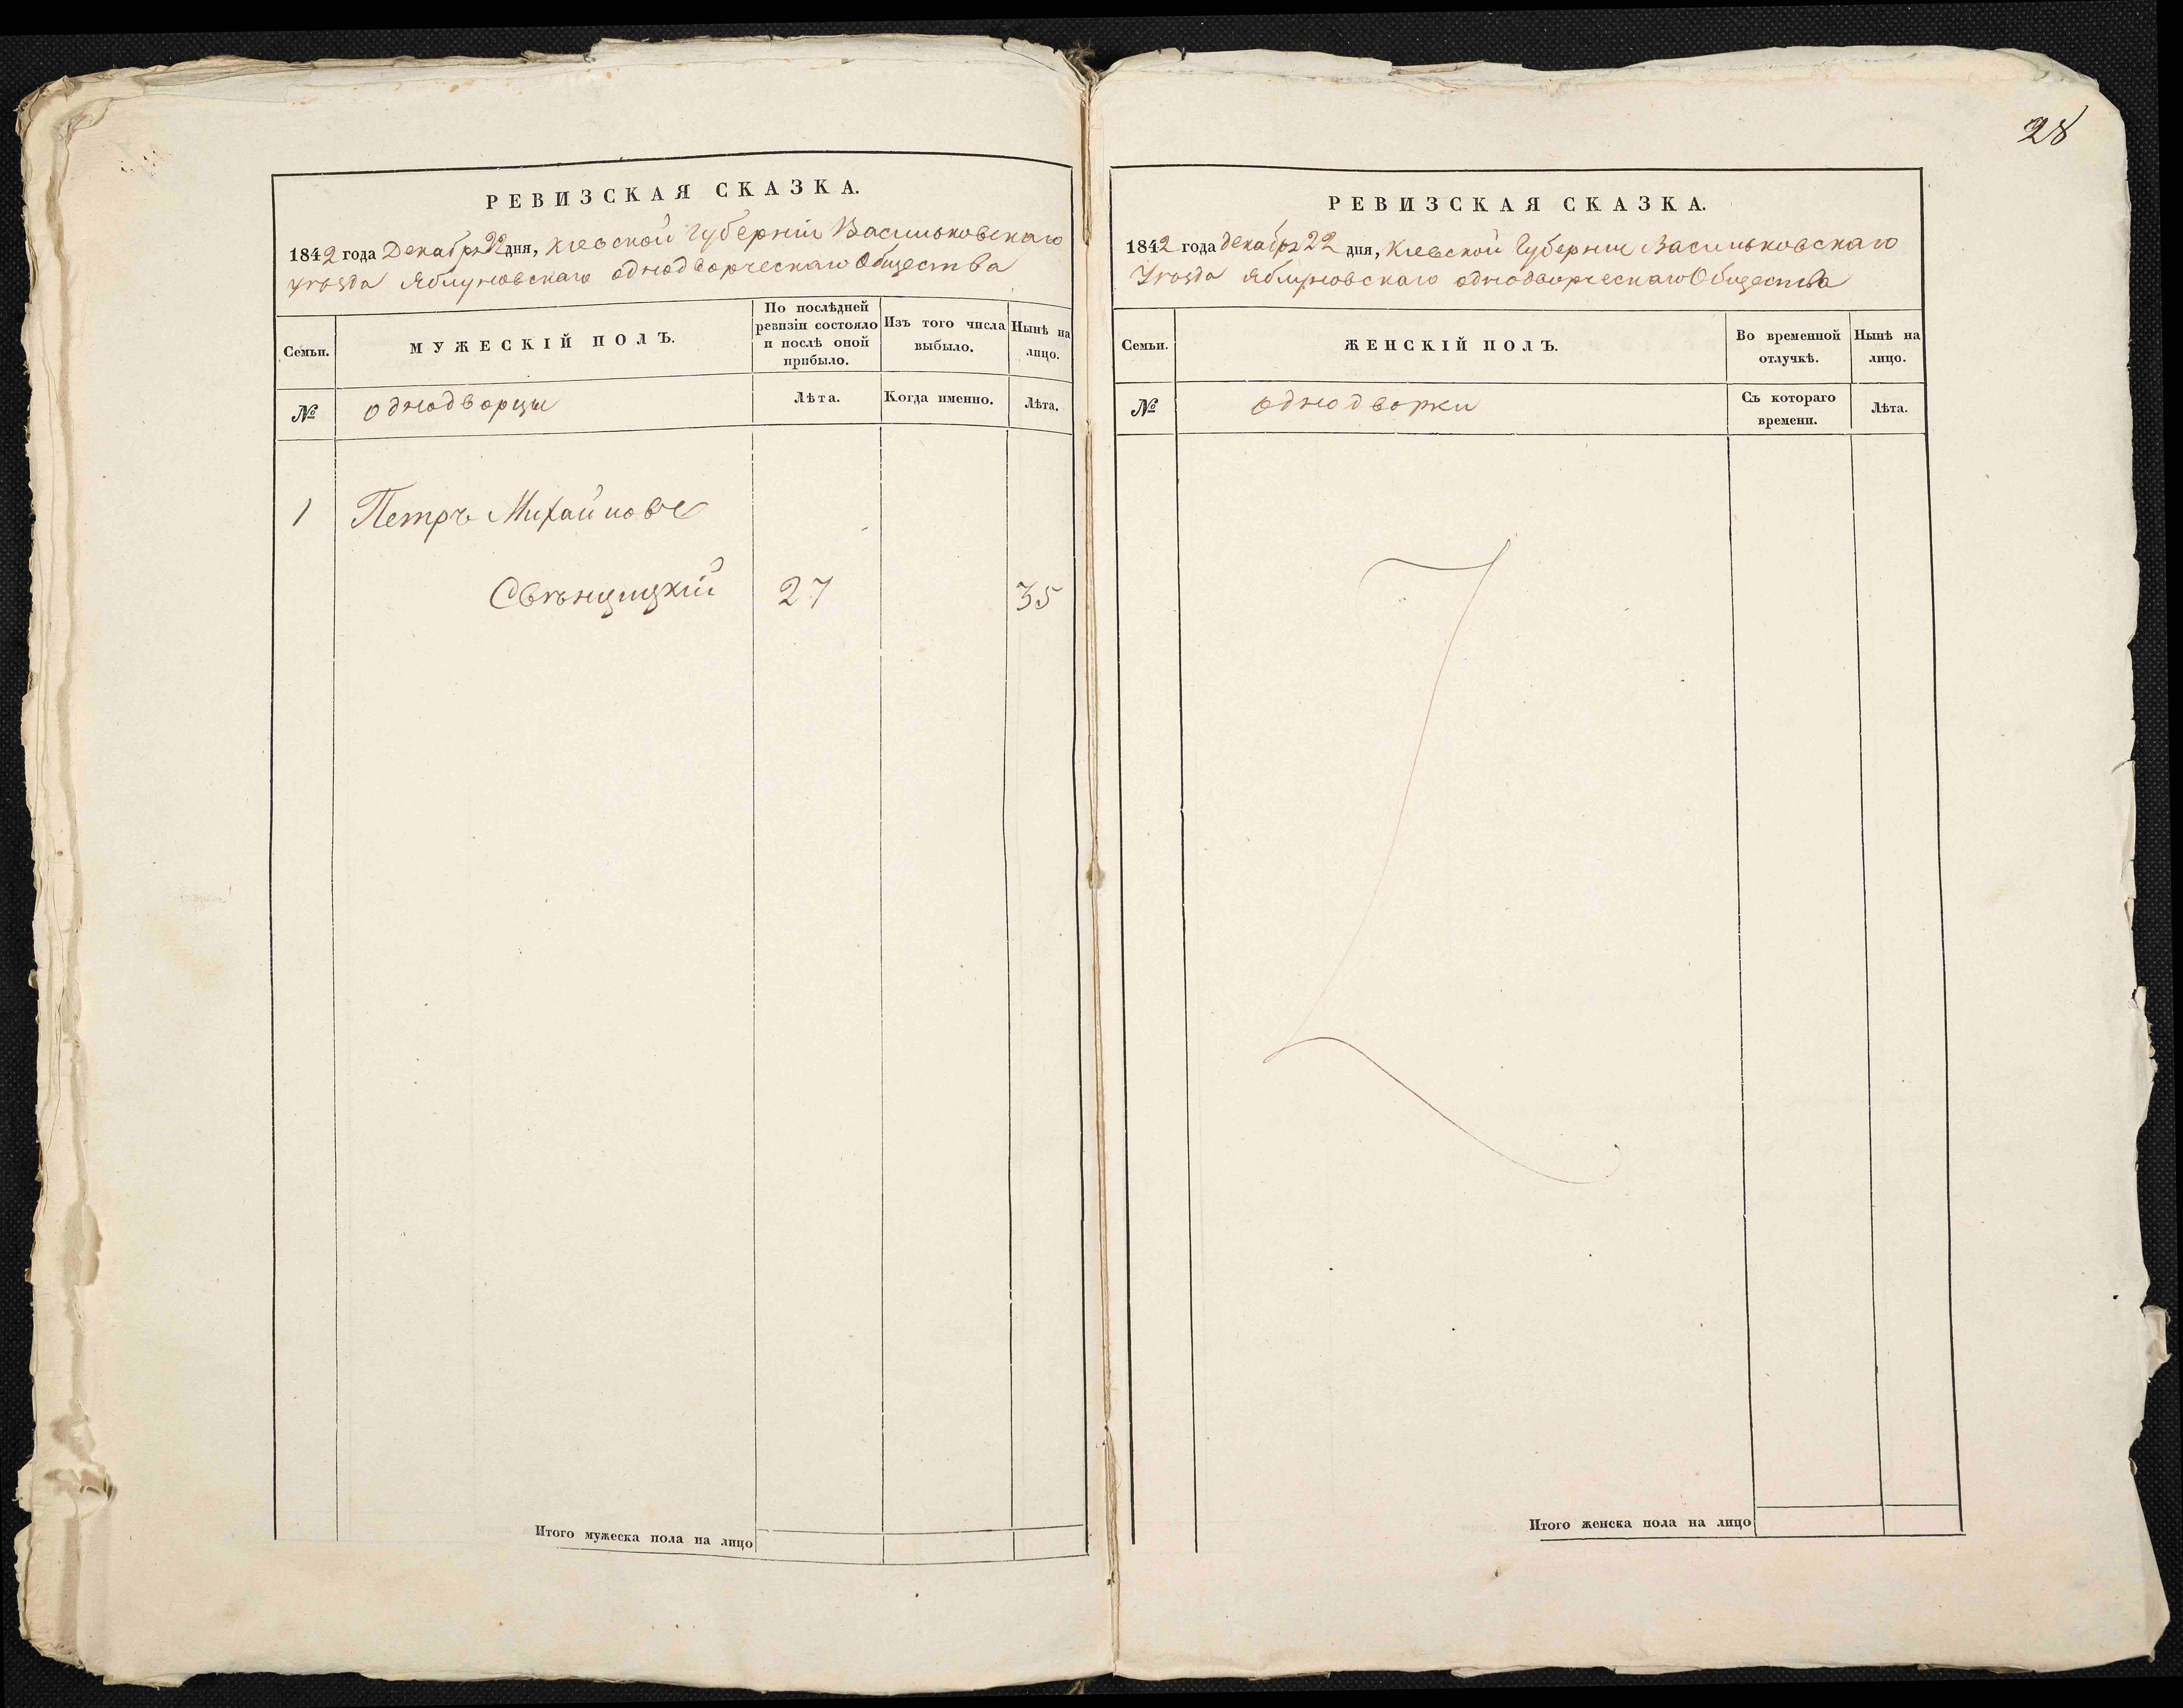 28
РЕВИЗСКАЯ СКАЗКА.
1842 года Декабря 22 дня, Кіевской Губерніи Васильковскаго
уѣзда Яблуновскаго однодворческаго Общества
Семьи.
МУЖЕСКІЙ ПОЛЪ.
По послѣдней
ревизіи состояло
и послѣ оной
прибыло.
Изъ того числа
выбыло.
Нынѣ на
лицо.
№
однодворцы
Лѣта.
Когда именно.
Лѣта.
1 Петръ Михайловъ
Свѣнцицкій 27 35
Итого мужеска пола на лицо
РЕВИЗСКАЯ СКАЗКА.
1842 года декабря 22 дня, Кіевской Губерніи Васильковскаго
Уѣзда Яблуновскаго однодворческаго Общества
Семьи.
ЖЕНСКІЙ ПОЛЪ.
Во временной
отлучкѣ.
Нынѣ на
лицо.
№
однодворки
Съ котораго
времени.
Лѣта.
Итого женска пола на лицо